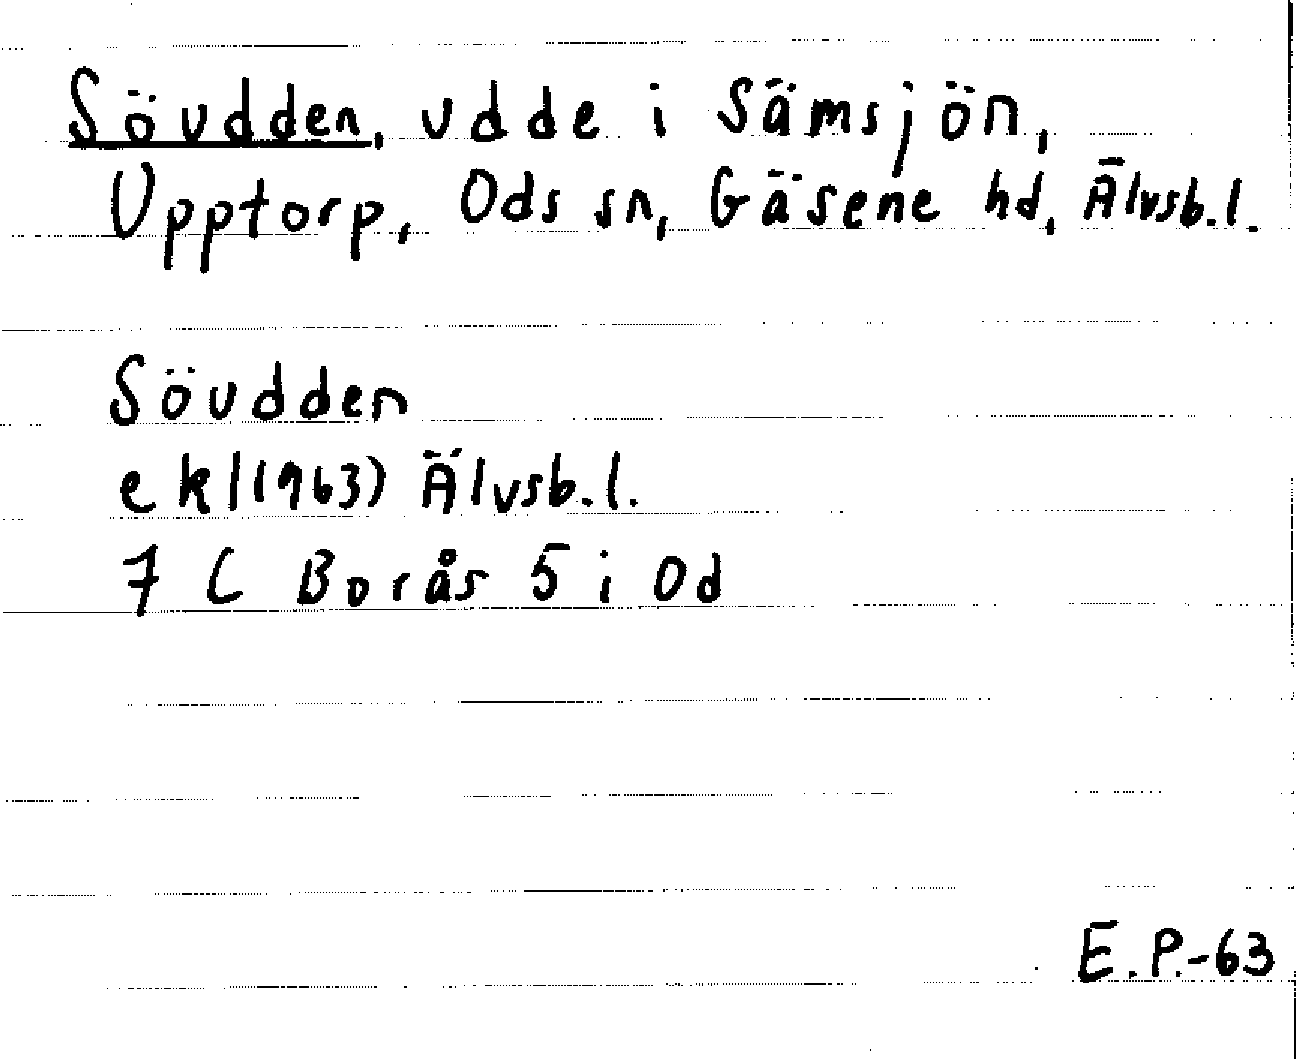 Söudden, udde i Sämsjön,
Upptorp, Ods sn, Gäsene hd, Älvsb.l.
Söudden
ek/(1963) Älvsb.l.
7 C Borås 5 i Od
E.P.-63